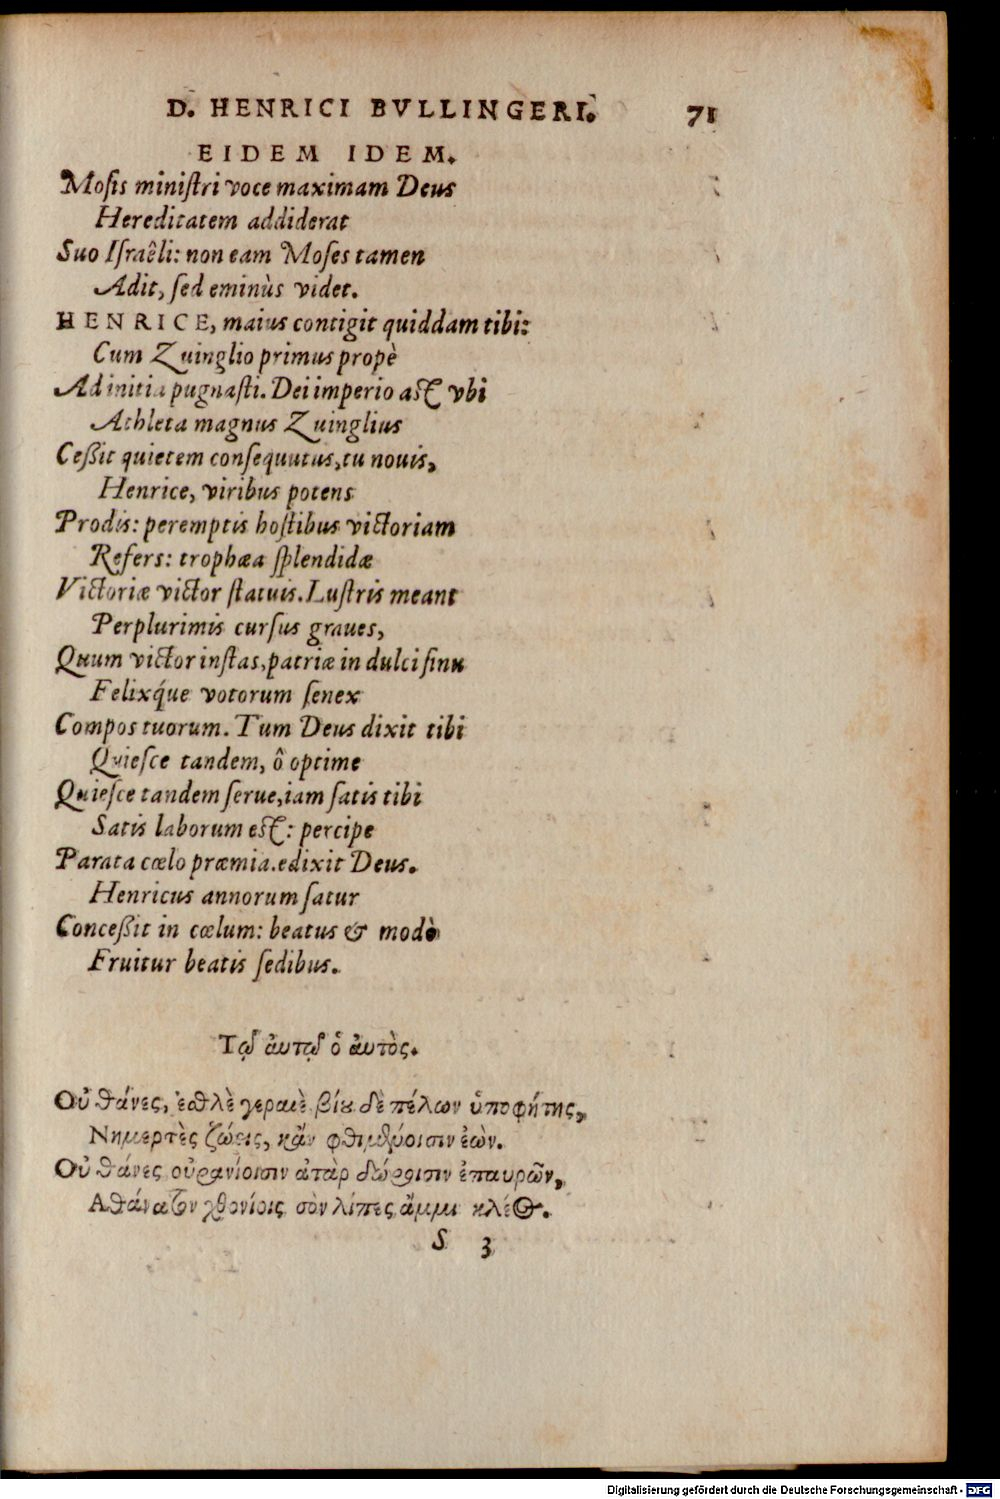 D. HENRICI BVLLINGERI. 71
EIDEM IDEM.
Mosis ministri voce maximam Deus
Hereditatem addiderat
Suo Israêli: non eam Moses tamen
Adit, sed eminùs videt.
HENRICE, maius contigit quiddam tibi:
Cum Zuinglio primus propè
Ad initia pugnasti. Dei imperio ast vbi
Athleta magnus Zuinglius
Ceßit quietem consequutus, tu nouis,
Henrice, viribus potens
Prodis: peremptis hostibus victoriam
Refers: trophæa splendidæ
Victoriæ victor statuis. Lustris meant
Perplurimis cursus graues,
Quum victor instas, patriæ in dulci sinu
Felixq́ue votorum senex
Compos tuorum. Tum Deus dixit tibi
Quiesce tandem, ô optime
Quiesce tandem serue, iam satis tibi
Satis laborum est: percipe
Parata cœlo præmia. edixit Deus.
Henricus annorum satur
Conceßit in cœlum: beatus & modò
Fruitur beatis sedibus.
Τῷ ἀυτῷ ὁ ἀυτὸς.
Οὐ θάνες, ἐσθλὲ γεραιὲ βίου δὲ πέλων ὑποφήτης,
Νημερτὲς ζώεις, κᾂν φθιμένοισιν ἐὼν.
Οὐ θάνες οὐρανίοισιν ἀτὰρ δώροισιν ἐπαυρῶν,
Αθάνατον χθονίοις σὸν λίπες ἄμμι κλέος.
S 3
Digitalisierung gefördert durch die Deutsche Forschungsgemeinschaft - DFG